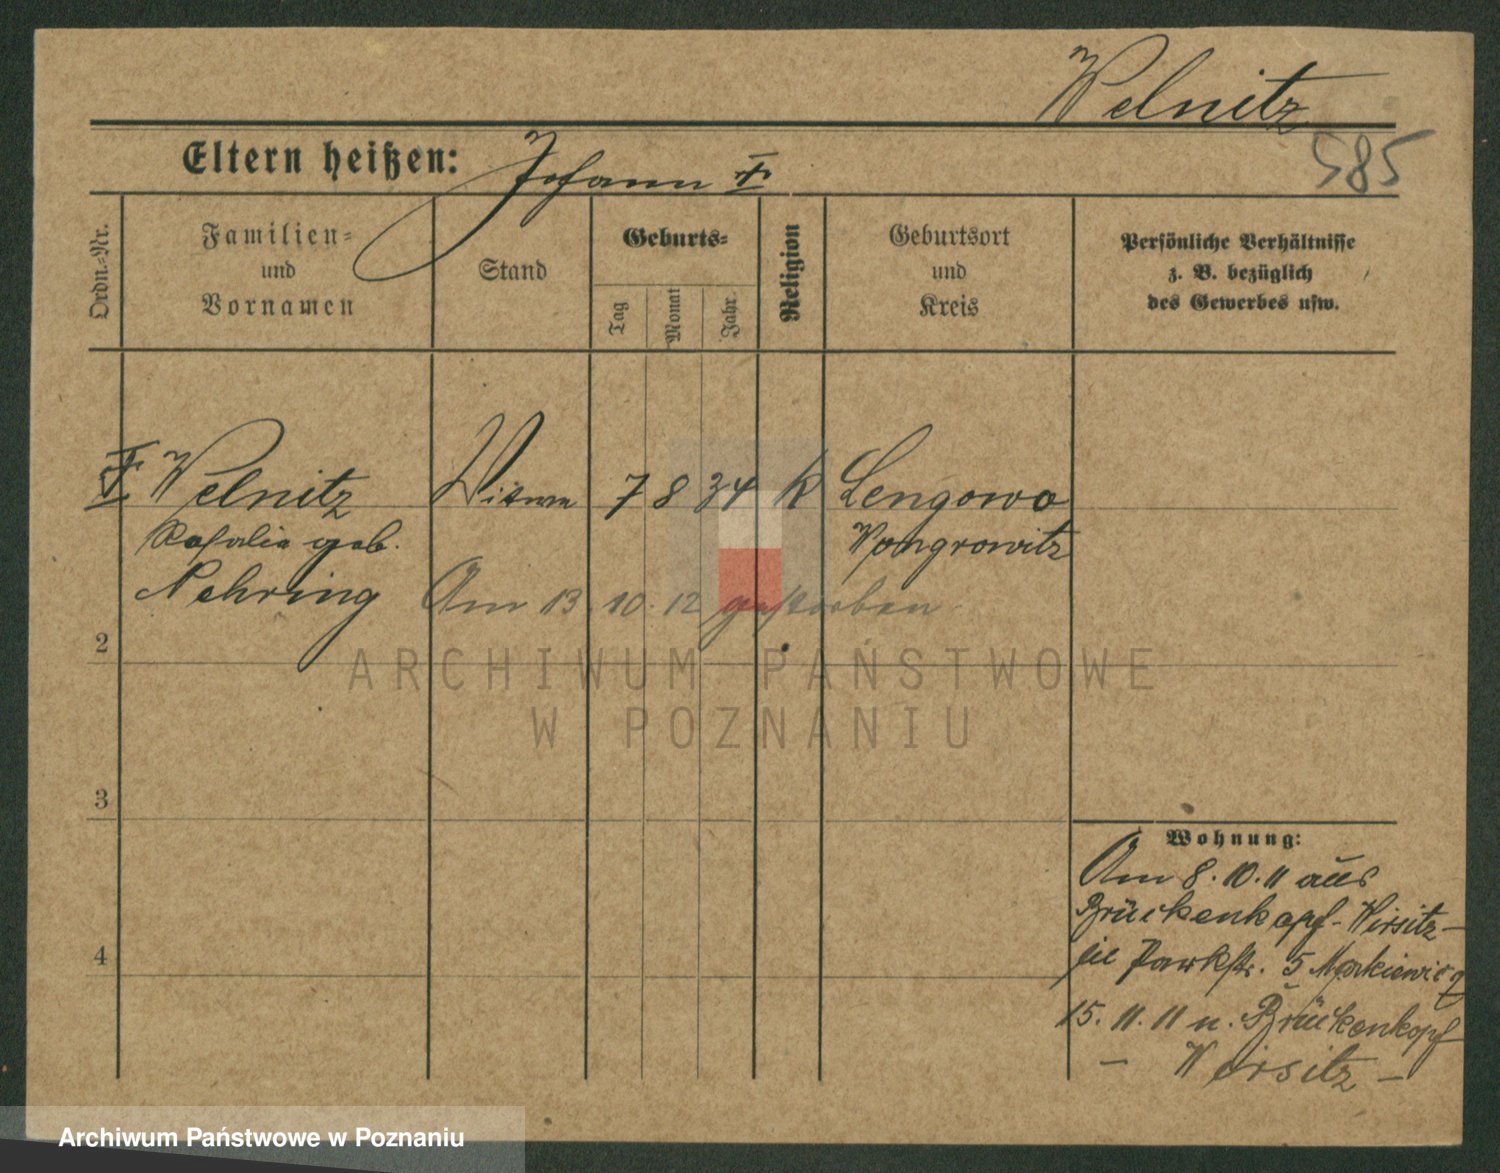 Welnitz
585
Eltern heißen: Johann ✝
Ordn.-Nr.
Familien-
und
Vornamen
Stand
Geburts-
Tag
Monat
Jahr
Religion
Geburtsort
und
Kreis
Persönliche Verhältnisse
z. B. bezüglich
des Gewerbes usw.
✝ Welnitz Witwe 7 8 34 k Lengowo
geb. Wongrowitz
Nehring Am 13. 10. 12 gestorben
2
ARCHIWUM PAŃSTWOWE
W POZNANIU
3
Wohnung:
Am 8. 10. 11 aus
Brückenkopf - Wirsitz -
Parkstr. 5
4
15. 11. 11 n. Brückenkopf
- Wirsitz -
Archiwum Państwowe w Poznaniu